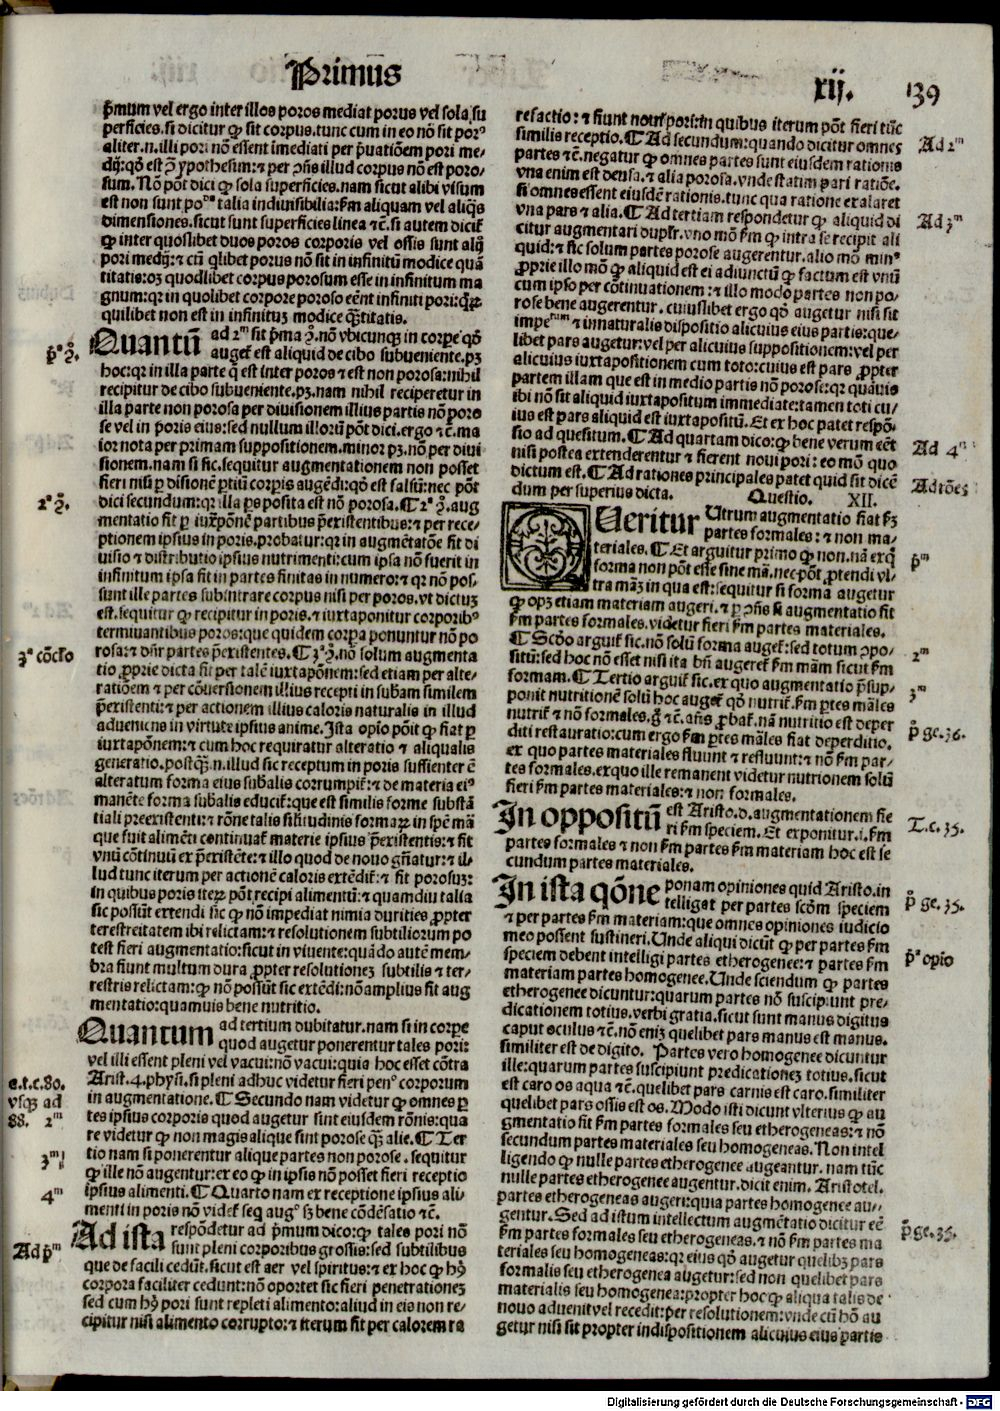 Primus
xij. 139
p̄mum vel ergo inter illos poros mediat porus vel sola su
perficies. si dicitur ꝙ sit corpus. tunc cum in eo nō sit porꝰ
aliter .n. illi pori nō essent īmediati per p̄uatiōem pori me-
dij: qd̄ est ꝯ̄ ypothesim: ⁊ per ꝯn̄s illud corpus nō est poro-
sum. Nō pōt dici ꝙ sola superficies. nam sicut alibi visum
est non sunt talia indiuisibilia: s̄m aliquam vel aliq̄s
dimensiones. sicut sunt superficies linea ⁊c̄. si autem dicit̄
ꝙ inter quoslibet duos poros corporis vel ossis sunt alij
pori medij: ⁊ cū q̄libet porus nō sit in infinitū modice quā
titatis: oꝫ quodlibet corpus porosum esse in infinitum ma
gnum: qꝛ in quolibet corpore poroso eēnt infiniti pori: q̄ꝝ
quilibet non est in infinituꝫ modice q̄ꝫtitatis.
Quantū ad 2ᵐ sit p̄ma ꝯ̄. nō vbicunqꝫ in corpe qd̄
auget̄ est aliquid de cibo subueniente. pꝫ
hoc: qꝛ in illa parte q̄ est inter poros ⁊ est non porosa: nihil
recipitur de cibo subueniente. pꝫ. nam nihil reciperetur in
illa parte non porosa per diuisionem illius partis nō poro
se vel in poris eius: sed nullum illorū pōt dici. ergo ⁊c̄. ma
ior nota per primam suppositionem. minor pꝫ. nō per diui
sionem. nam si sic. sequitur augmentationem non posset
fieri nisi ꝑ disionē ꝑtiū corpis augēdi: qd̄ est falsū: nec pōt
dici secundum: qꝛ illa ꝑs posita est nō porosa. ¶ 2ᵃ ꝯ̄. aug
mentatio fit ꝑ iuxꝑōnē partibus p̄existentibus: ⁊ per rece-
ptionem ipsius in poris. probatur: qꝛ in augmētatōe fit di
uisio ⁊ distributio ipsius nutrimenti: cum ipsa nō fuerit in
infinitum ipsa fit in partes finitas in numero: ⁊ qꝛ nō pos-
sunt ille partes subintrare corpus nisi per poros. vt dictuꝫ
est. sequitur ꝙ recipitur in poris. ⁊ iuxtaponitur corporibꝰ
terminantibus poros: que quidem corpa ponuntur nō po
rosa: ⁊ dn̄r partes p̄existentes. ¶ 3ᵃ ꝯ̄. nō solum augmenta
tio ꝓprie dicta fit per talē iuxtapōnem: sed etiam per alte-
ratiōem ⁊ per cōuersionem illius recepti in subam similem
p̄existenti: ⁊ per actionem illius caloris naturalis in illud
adueniens in virtute ipsius anime. Ista opio pōit ꝙ fiat ꝑ
iuxtapōnem: ⁊ cum hoc requiratur alteratio ⁊ aliqualis
generatio. postqꝫ .n. illud sic receptum in poris sufficienter ē
alteratum forma eius subalis corrumpit̄: ⁊ de materia eiꝰ
manēte forma subalis educit̄: que est similis forme substā
tiali preexistenti: ⁊ rōne talis similitudinis formaꝝ in spē mā
que fuit alimēti continuat̄ materie ipsius p̄existentis: ⁊ fit
vnū cōtinuū ex p̄existēte: ⁊ illo quod de nouo gn̄atur: ⁊ il-
lud tunc iterum per actionē caloris extēdit̄: ⁊ fit porosuꝫ:
in quibus poris iteꝝ pōt recipi alimentū: ⁊ quamdiu talia
sic possūt extendi sic ꝙ nō impediat nimia durities ꝓpter
terrestreitatem ibi relictam: ⁊ resolutionem subtiliorum po
test fieri augmentatio: sicut in viuente: quādo autē mem-
bra fiunt multum dura ꝓpter resolutioneꝫ subtilis ⁊ ter-
restris relictam: ꝙ nō possūt sic extēdi: nō amplius fit aug
mentatio: quamuis bene nutritio.
Quantum ad tertium dubitatur. nam si in corpe
quod augetur ponerentur tales pori:
vel illi essent pleni vel vacui: nō vacui: quia hoc esset cōtra
Arist. 4. physi. si pleni adhuc videtur fieri penꝰ corporum
in augmentatione. ¶ Secundo nam videtur ꝙ omnes ꝑ
tes ipsius corporis quod augetur sint eiusdem rōnis: qua
re videtur ꝙ non magis alique sint porose qꝫ alie. ¶ Ter
tio nam si ponerentur alique partes non porose. sequitur
ꝙ ille nō augentur: ex eo ꝙ in ipsis nō posset fieri receptio
ipsius alimenti. ¶ Quarto nam ex receptione ipsius ali-
menti in poris nō videt̄ seq̄ augꝰ sꝫ bene cōdēsatio ⁊c̄.
Ad ista respōdetur ad p̄mum dico: ꝙ tales pori nō
sunt pleni corporibus grossis: sed subtilibus
que de facili cedūt. sicut est aer vel spiritus: ⁊ ex hoc ꝙ hꝫ
corpora faciliter cedunt: nō oportet sic fieri penetrationeꝫ
sed cum hꝫ pori sunt repleti alimento: aliud in eis non re-
cipitur nisi alimento corrupto: ⁊ iterum fit per calorem ra
refactio: ⁊ fiunt noui pori: in quibus iterum pōt fieri tūc
similis receptio. ¶ Ad secundum: quando dicitur omnes
partes ⁊c̄. negatur ꝙ omnes partes sunt eiusdem rationis
vna enim est densa. ⁊ alia porosa. vnde statim pari ratiōe.
si omnes essent eiusdē rationis. tunc qua ratione exalaret
vna pars ⁊ alia. ¶ Ad tertiam respondetur ꝙ aliquid di
citur augmentari duplr̄. vno mō s̄m ꝙ intra se recipit ali
quid: ⁊ sic solum partes porose augerentur. alio mō minꝰ
ꝓprie illo mō ꝙ aliquid est ei adiunctū ꝙ factum est vnū
cum ipso per cōtinuationem: ⁊ illo modo partes non po-
rose bene augerentur. cuiuslibet ergo qd̄ augetur nisi sit
impeᵗᵘᵐ ⁊ innaturalis dispositio alicuius eius partis: que-
libet pars augetur: vel per alicuius suppositionem: vel per
alicuius iuxtapositionem cum toto: cuius est pars ꝓpter
partem illam que est in medio partis nō porose: qꝛ quāuis
ibi nō sit aliquid iuxtapositum immediate: tamen toti cu-
ius est pars aliquid est iuxtapositū. Et ex hoc patet respō-
sio ad quesitum. ¶ Ad quartam dico: ꝙ bene verum eēt
nisi postea extenderentur ⁊ fierent noui pori: eo mō quo
dictum est. ¶ Ad rationes principales patet quid sit dicē
dum per superius dicta. Questio. XII.
Queritur Utrum augmentatio fiat s̄ꝫ
partes formales: ⁊ non ma-
teriales. ¶ Et arguitur primo ꝙ non. nā exq̄
forma non pōt esse sine mā. nec pōt ꝓtendi vl-
tra māꝫ in qua est: sequitur si forma augetur
ꝙ opꝫ etiam materiam augeri. ⁊ ꝑ ꝯn̄s si augmentatio fit
s̄m partes formales. videtur fieri s̄m partes materiales.
¶ Scd̄o arguit̄ sic. nō solū forma auget̄: sed totum ꝯpo-
situ: sed hoc nō esset nisi ita bn̄ augeret̄ s̄m mām sicut s̄m
formam. ¶ Tertio arguit̄ sic. ex quo augmentatio p̄sup-
ponit nutritionē solū hoc auget̄ qd̄ nutrit̄. s̄m ꝑtes māles
nutrit̄ ⁊ nō formales. ḡ ⁊c̄. añs ꝓbat̄. nā nutritio est deper
diti restauratio: cum ergo s̄m ꝑtes māles fiat deperditio.
ex quo partes materiales fluunt ⁊ refluunt: ⁊ nō s̄m par-
tes formales. ex quo ille remanent videtur nutrionem solū
fieri s̄m partes materiales: ⁊ non formales.
In oppositū est Aristo. d. augmentationem fie
ri s̄m speciem. Et exponitur .i. s̄m
partes formales ⁊ non s̄m partes s̄m materiam hoc est se
cundum partes materiales.
In ista qōne ponam opiniones quid Aristo. in
telligat per partes scd̄m speciem
⁊ per partes s̄m materiam: que omnes opiniones iudicio
meo possent sustineri. Unde aliqui dicūt ꝙ per partes s̄m
speciem debent intelligi partes etherogenee: ⁊ partes s̄m
materiam partes homogenee. Unde sciendum ꝙ partes
etherogenee dicuntur: quarum partes nō suscipiunt pre-
dicationem totius. verbi gratia. sicut sunt manus digitus
caput oculus ⁊c̄. nō enīꝫ quelibet pars manus est manus.
similiter est de digito. Partes vero homogenee dicuntur
ille: quarum partes suscipiunt predicationeꝫ totius. sicut
est caro os aqua ⁊c̄. quelibet pars carnis est caro. similiter
quelibet pars ossis est os. Modo isti dicunt vlterius ꝙ au
gmentatio fit s̄m partes formales seu etherogeneas: ⁊ nō
secundum partes materiales seu homogeneas. Non intel
ligendo ꝙ nulle partes etherogenee augeantur. nam tūc
nulle partes etherogenee augentur. dicit enim. Aristotel.
partes etherogeneas augeri: quia partes homogenee au-
gentur. Sed ad istum intellectum augmētatio dicitur eē
s̄m partes formales seu etherogeneas. ⁊ nō s̄m partes ma
teriales seu homogeneas: qꝛ eius qd̄ augetur quelibꝫ pars
formalis seu etherogenea augetur: sed non quelibet pars
materialis seu homogenea: propter hoc ꝙ aliqua talis de
nouo aduenit vel recedit: per resolutionem: vnde cū hō au
getur nisi sit propter indispositionem alicuius eius partis
pᵃ ꝯ̄.
2ᵃ ꝯ̄.
3ᵃ cōclō
e. t. c. 80.
vsqꝫ ad
88. 2ᵐ
3ᵐ
4ᵐ
Ad pᵐ
Ad 2ᵐ
Ad 3ᵐ
Ad 4ᵐ
Ad rōes
pᵐ
2ᵐ
3ᵐ
p̊ ge. 36.
T. c. 35.
p̊ ge. 35.
pᵃ opio
p̊ ge. 35.
Digitalisierung gefördert durch die Deutsche Forschungsgemeinschaft - DFG